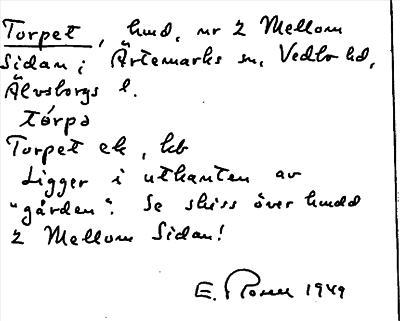 Torpet, hmd. nr 2 Mellom
Sidan i Ärtemarks sn, Vedbo hd,
Älvsborgs l.
tórpə
Torpet ek, kb
Ligger i utkanten av
"gården". Se skiss över hmdd
2 Mellom Sidan!
E. 1949